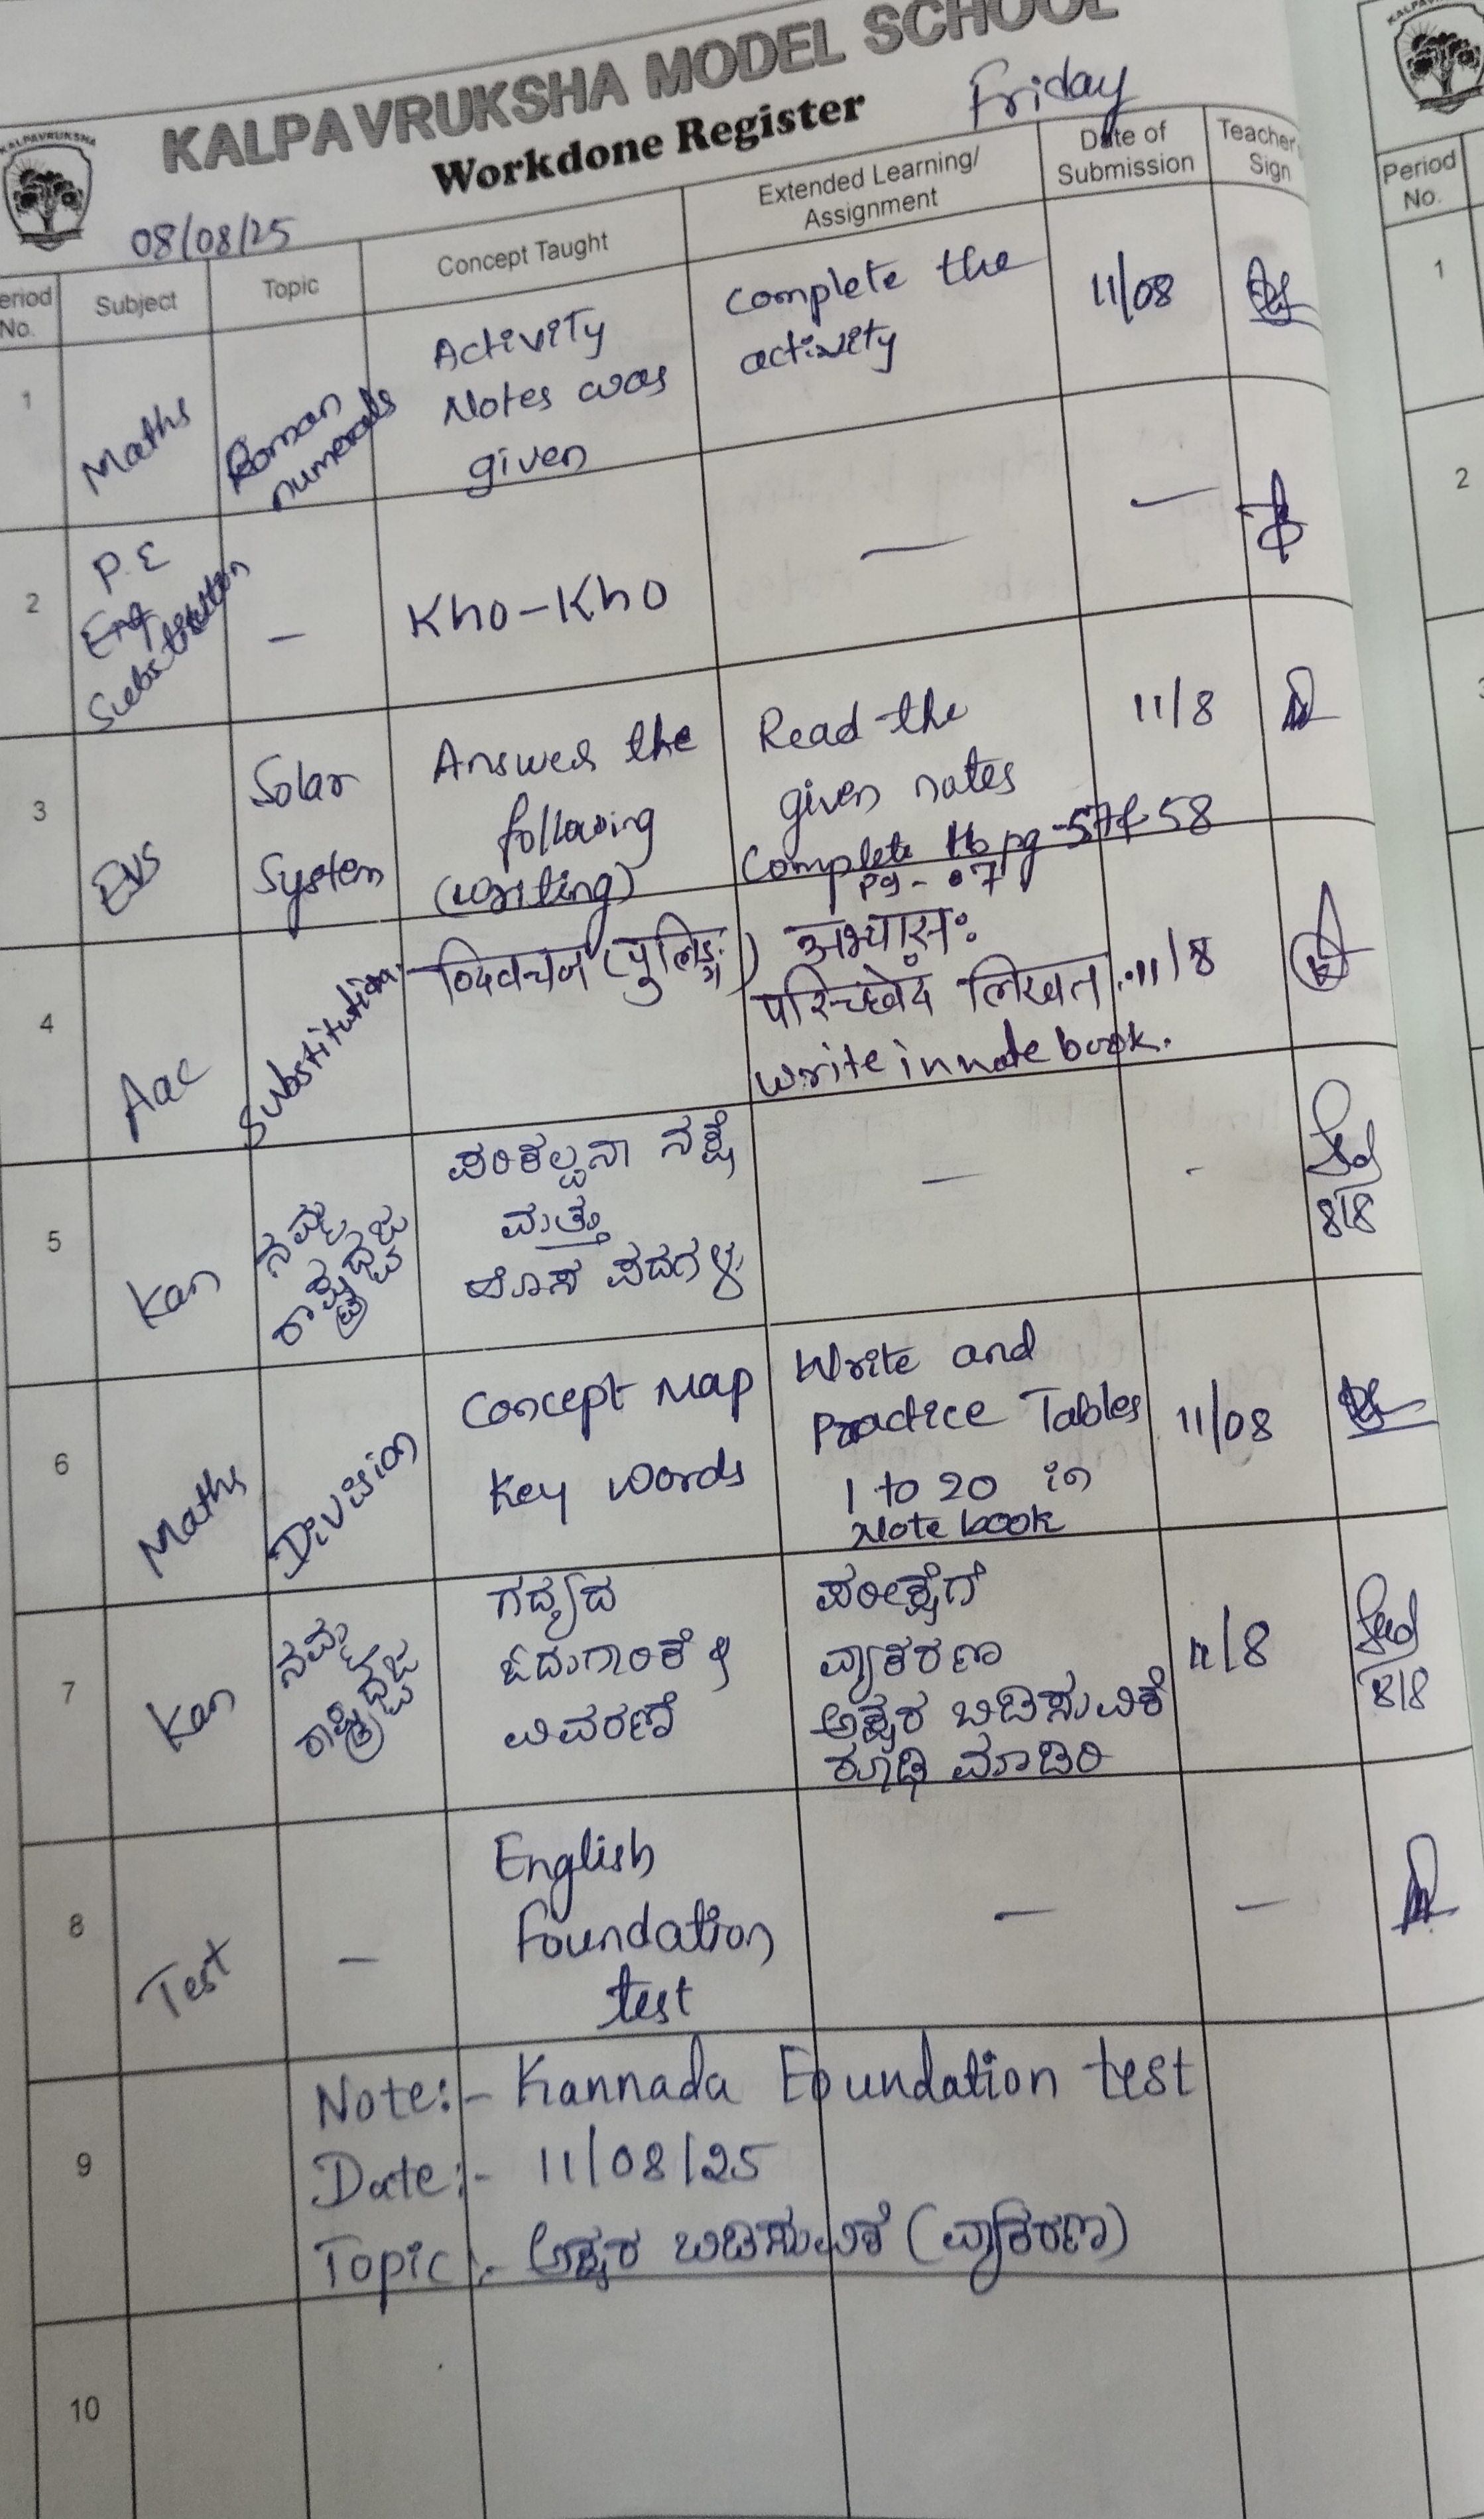 KALPAVRUKSHA MODEL SCHOOL
Workdone Register
Friday
KALPAVRUKSHA
08/08/25
Period No.
Subject
Topic
Concept Taught
Extended Learning/ Assignment
Date of Submission
Teacher Sign
1
Maths
Roman numerals
Activity
Notes was
given
Complete the
activity
11/08
2
P.E
Eng
Substitution
-
Kho-Kho
—
—
3
EVS
Solar
System
Answer the
following
(writing)
Read the
given notes
Complete tb pg-57 & 58
11/8
4
Aac
Substitution
द्विवचन (पुलिङ्ग)
pg-07
अभ्यासः
परिच्छेदं लिखत
write in note book.
11/8
5
Kan
ನಮ್ಮ
ರಾಷ್ಟ್ರಧ್ವಜ
ಪರಿಕಲ್ಪನಾ ನಕ್ಷೆ
ಮತ್ತು
ಹೊಸ ಪದಗಳು
—
-
8/8
6
Maths
Division
Concept Map
Key words
Write and
Practice Tables
1 to 20 in
Note book
11/08
7
Kan
ನಮ್ಮ
ರಾಷ್ಟ್ರಧ್ವಜ
ಗದ್ಯದ
ಓದುಗಾರಿಕೆ &
ವಿವರಣೆ
ಪರೀಕ್ಷೆಗೆ
ವ್ಯಾಕರಣ
ಅಕ್ಷರ ಬಿಡಿಸುವಿಕೆ
ರೂಢಿ ಮಾಡಿರಿ
11/8
8/8
8
Test
—
English
foundation
test
—
—
9
Note:- Kannada Foundation test
Date:- 11/08/25
Topic:- ಅಕ್ಷರ ಬಿಡಿಸುವಿಕೆ (ವ್ಯಾಕರಣ)
10
Period No.
1
2